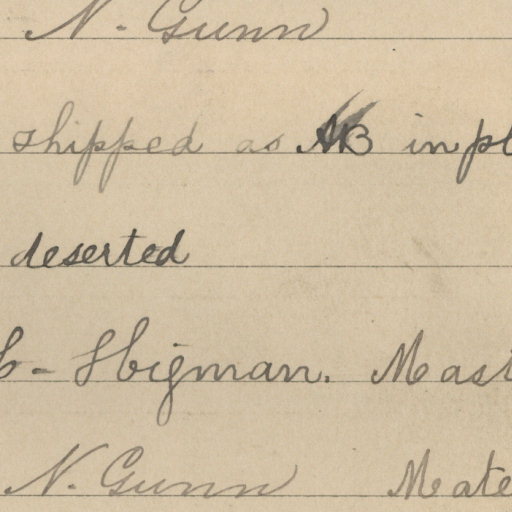 N. Gunn
shipped as AB in pl
deserted
Higman. Mast
N. Gunn Mate